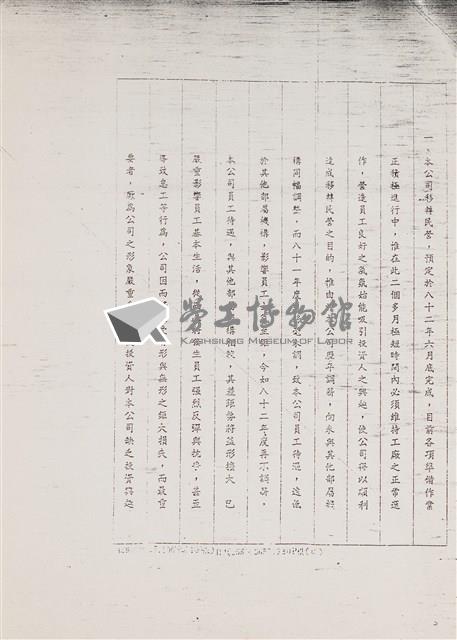 一、本公司移轉民營，預定於八十二年六月底完成，目前各項準備作業
正積極進行中，惟在此二個多月極短時間內必須維持工廠之正常運
作，營造員工良好之氣氛始能吸引投資人之興趣，使公司得以順利
達成移轉民營之目的，惟由於本公司歷年調薪，向來與其他部屬機
構同幅調整，而八十一年度 未調，致本公司員工待遇，遠低
於其他部屬機構，影響員工 至鉅，今如八十二年度再不調薪，
本公司員工待遇，與其他部 構相較，其差距勢將益形擴大，已
嚴重影響員工基本生活，從 將發生員工強烈反彈與抗爭，甚至
導致怠工等行為，公司因而 受 形與無形之鉅大損失，而最重
要者，厥為公司之形象嚴重 投資人對本公司缺乏投資興趣
勞工博物館
KAOHSIUNG MUSEUM OF LABOR